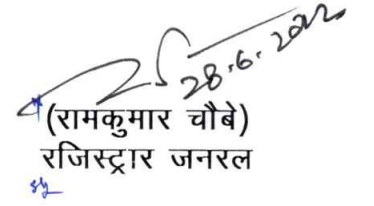 28.6.2022
(रामकुमार चौबे)
रजिस्ट्रार जनरल